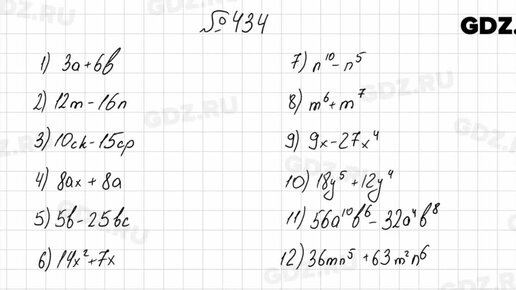 № 434
GDZ.RU
1) 3a+6b
2) 12m-16n
3) 10ck-15cp
4) 8ax+8a
5) 5b-25bc
6) 14x²+7x
7) n¹⁰-n⁵
8) m⁶+m⁷
9) 9x-27x⁴
10) 18y⁵+12y⁴
11) 56a¹⁰b⁶-32a⁴b⁸
12) 36mn⁵+63m²n⁶